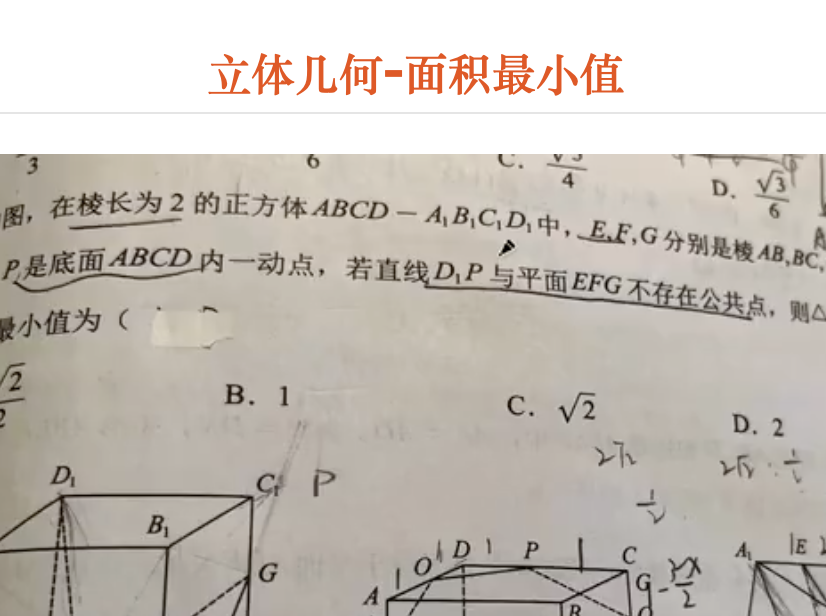 立体几何-面积最小值
3
6
C. √3/4
D. √3/6
图，在棱长为 2 的正方体 ABCD－A₁B₁C₁D₁中，E,F,G 分别是棱 AB,BC,
P 是底面 ABCD 内一动点，若直线 D₁P 与平面 EFG 不存在公共点，则△
最小值为（
√2/2
B. 1
C. √2
D. 2
D₁
C₁
P
B₁
G
O
D
P
C
A
B
G
A₁
E